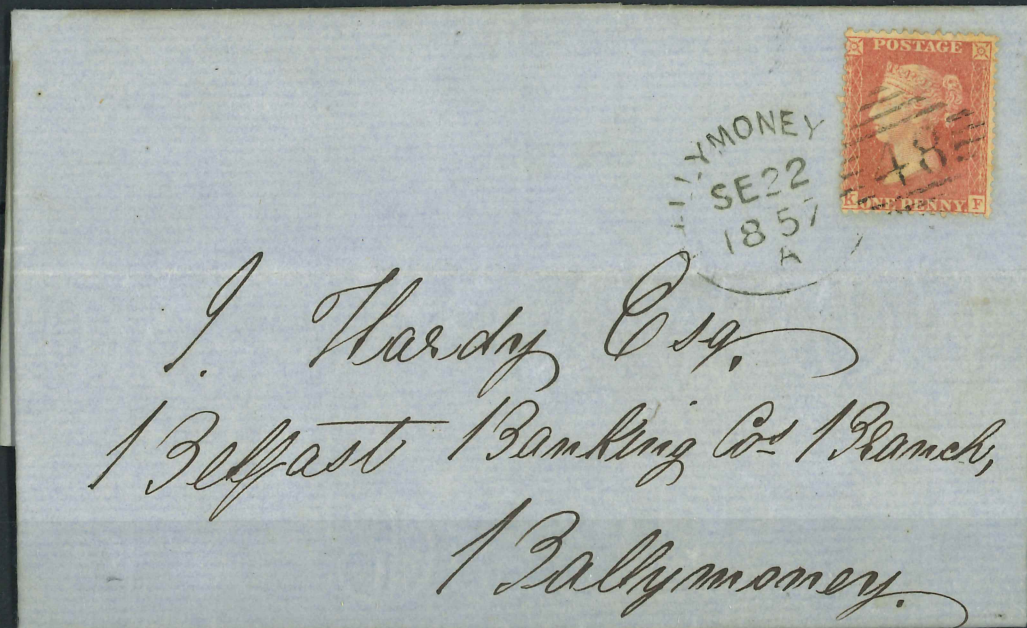 POSTAGE
ONE PENNY
K F
BALLYMONEY
SE22
1857
A
48
J. Hardy Esq.
Belfast Banking Cos Branch,
Ballymoney.